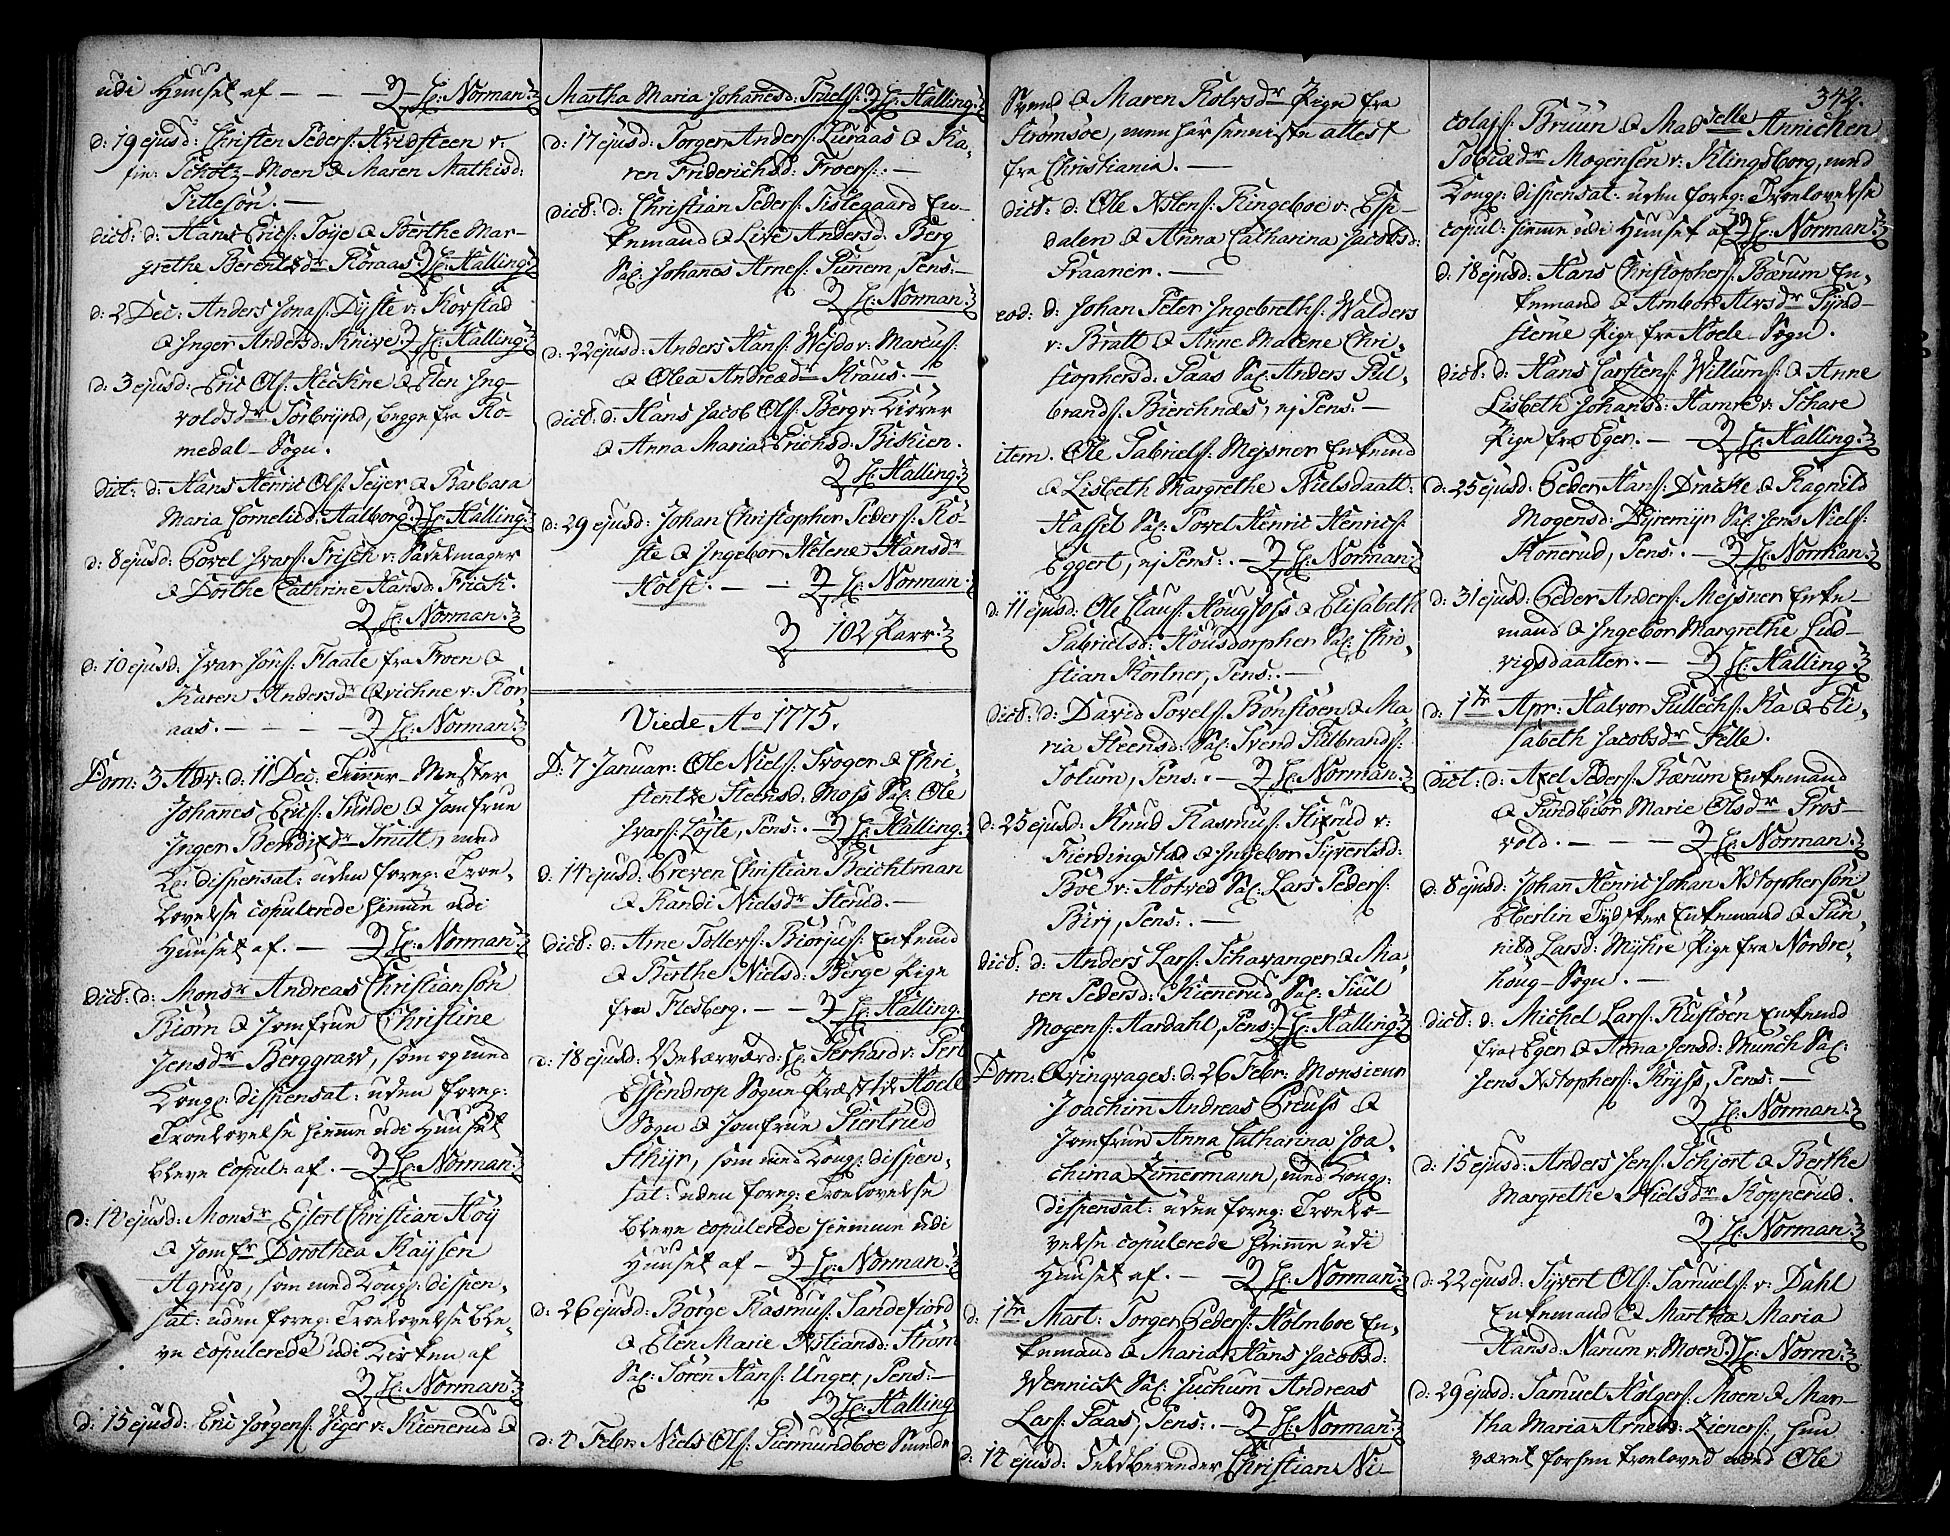 udi Huuset af - - - H: Norman.
d: 19 ejusd: Christen Peders: Hvidsteen v.
fin: Scholtz-Moen & Maren Mathisd:
Tillesön. -
dict: d: Hans Erics: Töye & Berthe Mar-
grethe Berentsdr Röraas. H: Halling
d: 2 Dec: Anders Jonas: Dyste v: Korstad
& Inger Andersd: Knive. H: Halling
d: 3 ejusd: Eric Ols: Heckne & Elen Ing-
voldsdr Torbrynd, begge fra Ro-
medal-Sogn.
dict: d: Hans Henric Ols: Seijer & Barbara
Maria Cornelisd: Aalborg. H: Halling
d: 8 ejusd: Povel Ivars: Frisch v: Sadelmager
& Dorthe Cathrine Hansd: Frick.
H: Norman.
d: 10 ejusd: Ivar Jöns: Flaate fra Froen &
Karen Andersdr Qvichne v: Kon
aas. - - - - H: Norman.
Dom: 3 Adv: d: 11 Dec: Timmer-Mester
Johannes Erics: Sunde & Jomfrue
Inger Bendixdr Smitt, med
K: dispensat: uden foreg: Troe-
lovelse copulerede hiemme udi
Huuset af. - H: Norman.
dict: d: Monsr Andreas Christiansön
Biörn & Jomfrue Christine
Jensdr Berggrav, som og med
Kong: dispensat: uden foreg:
Troelovelse hiemme udi Huuset
bleve copul: af. - H: Norman.
d: 14 ejusd: Monsr Ejlert Christian Höy
& Jomfr Dorothea Kaysen
Agrup, som med Kong: dispen-
sat: uden foreg: Troelovelse ble-
ve copulerede udi Kirken af
H: Norman.
d: 15 ejusd: Eric Jörgens: Siger v: Kienerud &
Martha Maria Johanesd: Truels: H: Halling
d: 17 ejusd: Torger Anders: Luraas & Ka-
ren Friderichsd: Froers: -
dict: d: Christian Peders: Tislegaard En-
kemand & Live Andersd: Berg
Sal: Johanes Arnes: Sunem, Pens: -
H: Norman.
d: 22 ejusd: Anders Hans: Wejda v: Marcus:
& Olea Andreædr Kraus. -
dict: d: Hans Jacob Ols: Berg v: Kirver
& Anna Maria Erichsd: Biskien.
H: Halling
d: 29 ejusd: Johan Christopher Peders: Ro-
ste & Ingebor Helene Hansdr
Holst. - - H: Norman.
102 Parr.
Viede Ao 1775.
D: 7 Januar: Ole Niels: Troger & Chri-
stentze Steensd: Moss Sal: Ole
Ivars: Löyte, Pens: - H: Halling
d: 14 ejusd: Preven Christian Beichtman
& Randi Nielsdr Sterud. -
dict: d: Arne Tollers: Biörjus: Enkemd
& Berthe Nielsd: Berge Pige
fra Flesberg. - - H: Halling.
d: 18 ejusd: Velærværd: H: Gerhard v: Gert
Essendrop Sogne Præst til Hoele
Sogn & Jomfrue Giertrud
Sthyr, som med Kong: dispen-
sat: uden foreg: Troelovelse
bleve copulerede hiemme udi
Huuset af - H: Norman.
d: 26 ejusd: Börge Rasmus: Sandefiord
& Elen Marie Xstiansd: Ström
Sal: Sören Hans: Unger, Pens: -
H: Halling
d: 4 Febr: Niels Ols: Giermundboe Sunde
Svend & Maren Rolvsdr Pige fra
Strömsöe, men har senneste attest
fra Christiania. -
dict: d: Ole Nils: Ringeboe v: Espe-
dalen & Anna Catharina Jacobsd:
Praaner. -
eod: d: Johan Peter Ingebreths: Walders
v: Bratt & Anne Malene Chri-
stophersd: Paas Sal: Anders Gul-
brands: Bierchnæs, ej Pens: -
item. Ole Gabriels: Mejsner Enkemd
& Lisbeth Margrethe Nielsdaatt:
Hassel Sal: Povel Henric Henrics:
Eggert, ej Pens: - H: Norman.
d: 11 ejusd: Ole Claus: Hougfoss & Elisabeth
Gabrielsd: Housdorpher Sal: Chri-
stian Körtner, Pens: -
dict: d: David Povels: Bonstöen & Ma-
ria Steensd: Sal: Svend Gulbrands:
Solum, Pens: - H: Norman.
d: 25 ejusd: Knud Rasmus: Stixrud v:
Fierdingstad & Ingebor Syvertsd:
Böe v: Hotved Sal: Lars Peders:
Birj, Pens: -
dict: d: Anders Lars: Schavanger & Ma-
ren Pedersd: Kienerud Sal: Juul
Mogens: Aardahl, Pens: H: Halling
Dom: Qvinqvages: d: 26 Febr: Monsieur
Joachim Andreas Preuss &
Jomfrue Anna Catharina Joa-
chima Zimermann, med Kong:
dispensat: uden foreg: Troelo-
velse copulerede hiemme udi
Huuset af. - H: Norman.
d: 1te Mart: Torger Peders: Holmboe En-
kemand & Maria Hans Jacobsd:
Wennick Sal: Juchum Andreas
Lars: Paas, Pens: - H: Norman.
d: 14 ejusd: Feldberender Christian Ni-
342.
colajs: Bruun & Madselle Annichen
Tobiædr Mogensen v: Klingsborg, med
Kong: dispensat: uden foreg: Troelovelse
copul: hiemme udi Huuset af H: Norman.
d: 18 ejusd: Hans Christophers: Bærum En-
kemand & Ambor Alvsdr Synd-
sterue Pige fra Hoele-Sogn.
dict: d: Hans Carstens: Willums: & Anne
Lisbeth Johansd: Hamre v: Schare
Pige fra Eger. - H: Halling.
d: 25 ejusd: Peder Hans: Dracke & Ragnild
Mogensd: Dyremyr Sal: Jens Niels:
Konerud, Pens: - H: Norman.
d: 31 ejusd: Peder Anders: Mejsner Enke-
mand & Ingebor Margrethe Lud-
vigsdaatter. - H: Halling.
d: 1te Apr: Halvor Gullichs: Ka & Eli-
sabeth Jacobsdr Felle.
dict: d: Axel Peders: Bærum Enkemand
& Gundbior Marie Olsdr Fros-
vold. - - - H: Norman.
d: 8 ejusd: Johan Henric Johan Xstophersön
Berlin Tydsker Enkemand & Gun-
nild Larsd: Myhre Pige fra Nordre-
houg-Sogn. -
dict: d: Michel Lars: Rustöen Enkemd
fra Eger & Anna Jensd: Munch Sal:
Jens Xstophers: Kryss, Pens: -
H: Norman.
d: 15 ejusd: Anders Jens: Schjort & Berthe
Margrethe Nielsdr Kopperud.
H: Norman.
d: 22 ejusd: Syvert Ols: Samuels: v: Dahl
Enkemand & Martha Maria
Hansd: Narum v: Moen. H: Norm:
d: 29 ejusd: Samuel Holgers: Moen & Mar-
tha Maria Arnesd: Kieners:, hun
været forhen troelovet med Ole